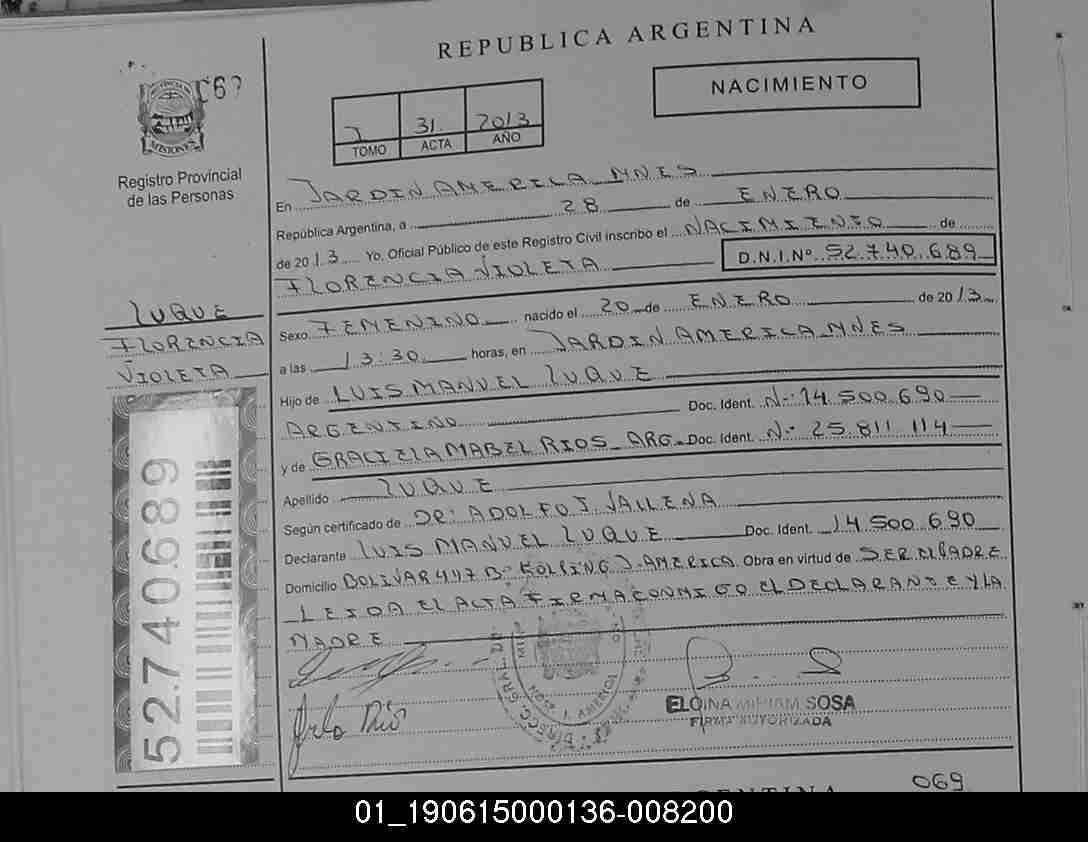 REPUBLICA ARGENTINA
NACIMIENTO
MISIONES
Registro Provincial
de las Personas
I 31 2013
TOMO ACTA AÑO
En JARDIN AMERICA MNES
República Argentina, a 28 de ENERO
de 2013 Yo, Oficial Público de este Registro Civil inscribo el NACIMIENTO de
FLORENCIA VIOLETA D.N.I.Nº 52.740.689
LUQUE
FLORENCIA
VIOLETA
Sexo FEMENINO nacido el 20 de ENERO de 2013
a las 13:30 horas, en JARDIN AMERICA MNES
Hijo de LUIS MANUEL LUQUE
ARGENTINO Doc. Ident. N.· 14.500.690
y de GRACIELA MABEL RIOS ARG. Doc. Ident. N.· 25.811.114
Apellido LUQUE
Según certificado de DR: ADOLFO J. VALLENA
Declarante LUIS MANUEL LUQUE Doc. Ident. 14.500.690
Domicilio BOLIVAR 497 B· KOLPING J. AMERICA Obra en virtud de SER EL PADRE
LEIDA EL ACTA FIRMA CONMIGO EL DECLARANTE Y LA
MADRE
52740689
ELOINA MIRIAM SOSA
FIRMA AUTORIZADA
069
01_190615000136-008200